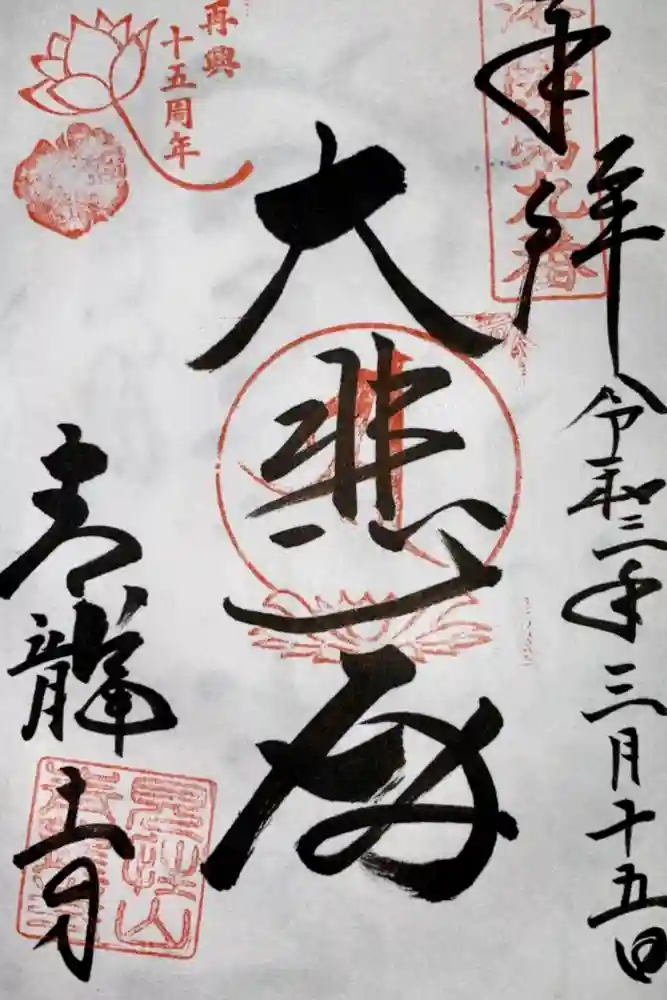 奉拝
令和三年三月十五日
大悲殿
再興
十五周年
青龍寺